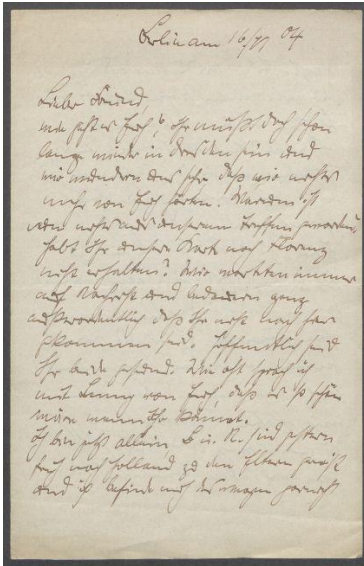 Berlin am 16/VI 04
Lieber Freund,
wie geht es Euch? Ihr müßt doch schon
lange wieder in Dresden sein und
wir wundern uns sehr daß wir nichts
mehr von Euch hörten. Warum ist
nun nichts aus unserem Treffen geworden,
habt Ihr unsere Karte nach Florenz
nicht erhalten? Wir warteten immer
auf Nachricht und bedauern ganz
außerordentlich daß Ihr nicht nach hier
gekommen seid. Hoffentlich seid
Ihr beide gesund. Wie oft sprach ich
mit von Euch, daß es so schön
wäre wenn Ihr kämet.
Ich bin jetzt allein u. sind gestern
früh nach Holland zu den Eltern gereist
und ich befinde mich deswegen